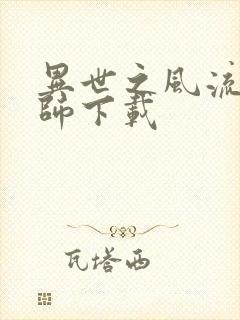 異世之風流
師下載
瓦塔西